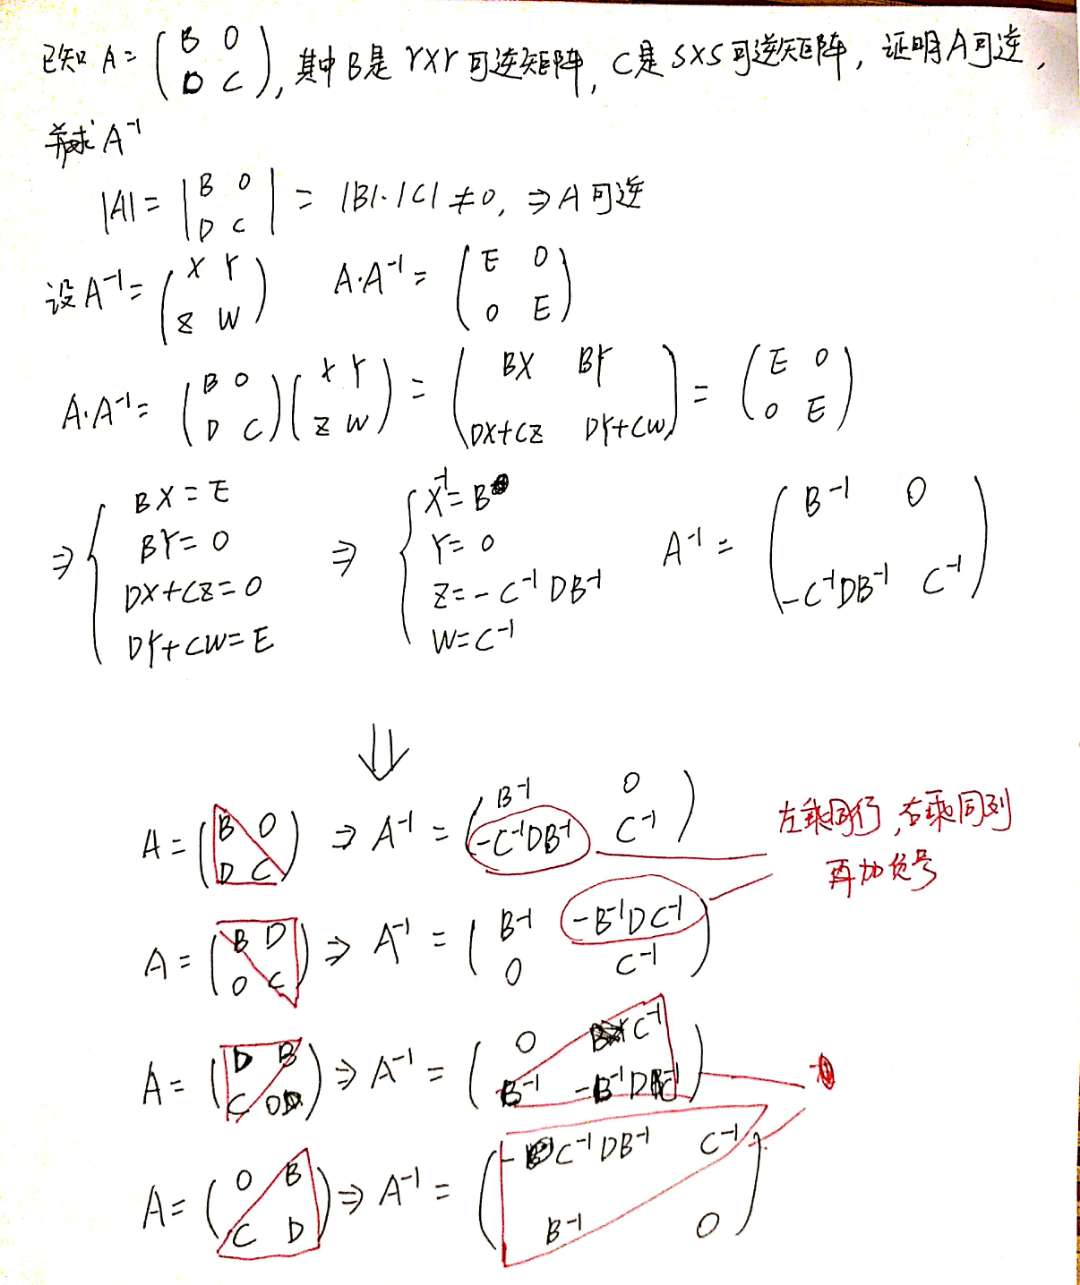 已知 A = ( B 0 ; D C ), 其中 B是 r×r 可逆矩阵, C是 s×s 可逆矩阵, 证明A可逆,
并求 A⁻¹
|A| = | B 0 ; D C | = |B|·|C| ≠ 0, ⇒ A 可逆
设 A⁻¹ = ( X Y ; Z W ) A·A⁻¹ = ( E 0 ; 0 E )
A·A⁻¹ = ( B 0 ; D C ) ( X Y ; Z W ) = ( BX BY ; DX+CZ DY+CW ) = ( E 0 ; 0 E )
⇒ { BX = E ⇒ { X⁻¹ = B A⁻¹ = ( B⁻¹ 0 ; -C⁻¹DB⁻¹ C⁻¹ )
BY = 0 Y = 0
DX+CZ = 0 Z = -C⁻¹DB⁻¹
DY+CW = E W = C⁻¹
⇓
A = ( B 0 ; D C ) ⇒ A⁻¹ = ( B⁻¹ 0 ; -C⁻¹DB⁻¹ C⁻¹ )
左乘同行, 右乘同列
再加负号
A = ( B D ; 0 C ) ⇒ A⁻¹ = ( B⁻¹ -B⁻¹DC⁻¹ ; 0 C⁻¹ )
A = ( D B ; C 0 ) ⇒ A⁻¹ = ( 0 C⁻¹ ; B⁻¹ -B⁻¹DC⁻¹ )
A = ( 0 B ; C D ) ⇒ A⁻¹ = ( -C⁻¹DB⁻¹ C⁻¹ ; B⁻¹ 0 )